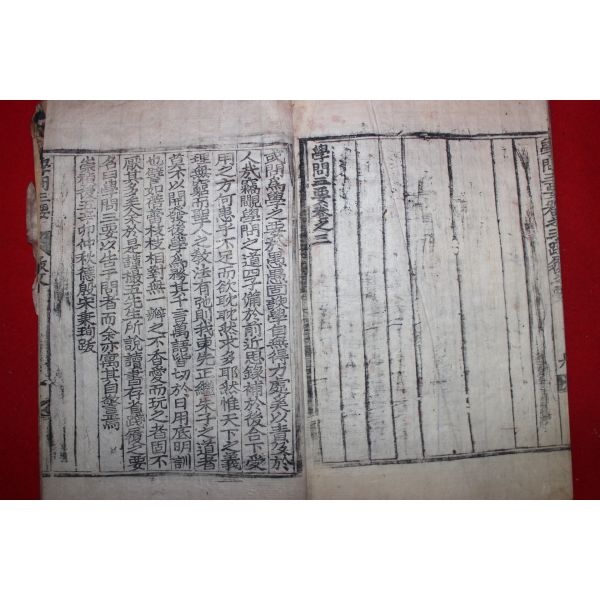 學問三要卷之三踐履
學問三要卷之三
或問爲學之要於愚愚固 學自無得力處矣以 及於
人哉竊 學問之道四子備於前近思錄補於後合下受
用之方何患乎不足而欲耽耽然求多耶然惟天下之義
理無窮而聖人之敎法有弛則我東先正繼朱子之道者
莫不以開發後學爲務其千言萬語皆切於日用底明訓
也譬如 枝枝相對無一瓣之不香愛而玩之者固不
厭其多矣余於是謹 五先生所說讀書存省踐履之要
名曰學問三要以告于問者而余亦寓其自警焉
崇禎後五辛卯仲秋德殷宋秉珣跋
學問三要 跋